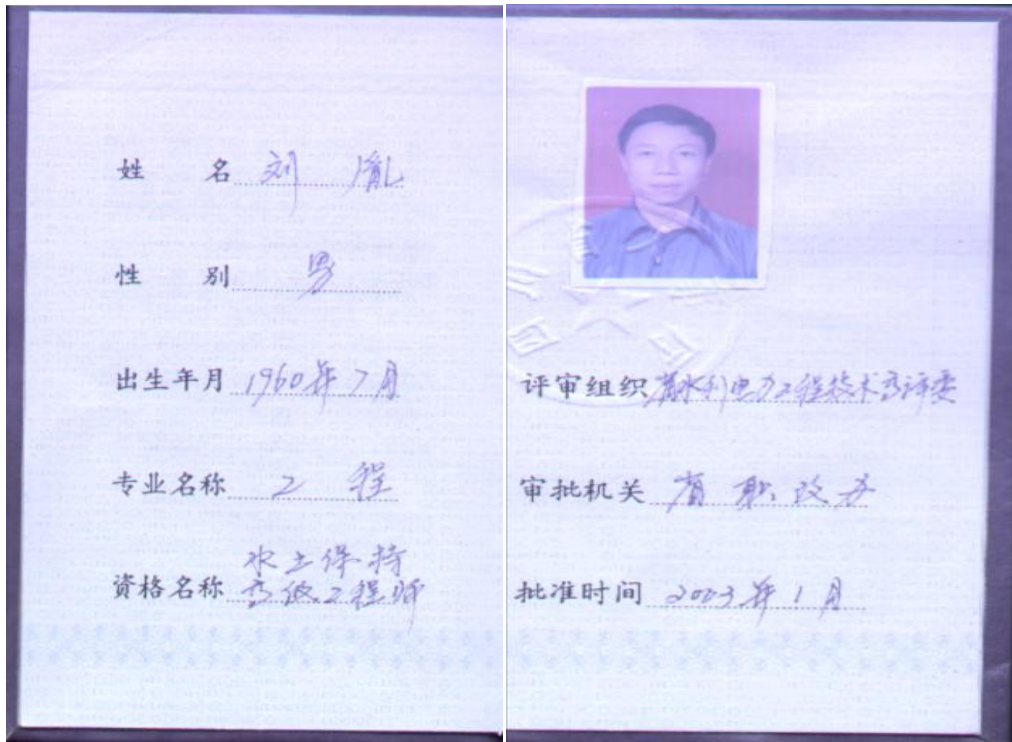 姓名 刘胤
性别 男
出生年月 1960年7月
专业名称 工程
资格名称 水土保持
高级工程师
评审组织 省水利电力工程技术高评委
审批机关 省职改办
批准时间 2003年1月